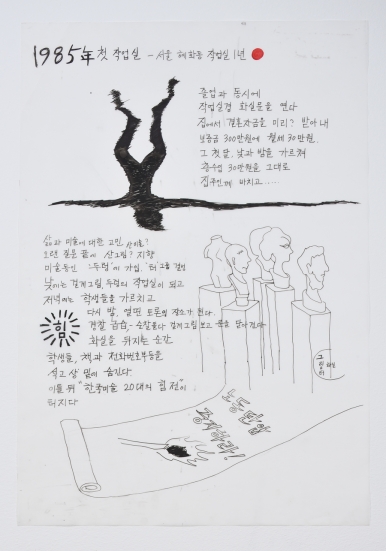 1985年 첫 작업실 - 서울 혜화동 작업실 1년
졸업과 동시에
작업실겸 화실문을 연다
집에서 "결혼자금을 미리? 받아내
보증금 300만원에 월세 30만원.
그 첫달, 낮과 밤을 가르쳐
총수입 30만원을 그대로
집주인께 바치고......
삶과 미술에 대한 고민,
오랜 질문 끝에 지향
미술동인 "두렁"에 가입,
낮이는 걸개그림, 두렁의 작업실이 되고
저녁에는 학생들을 가르치고
다시 밤, 열띤 토론의 장소가 된다.
경찰 급습, 순찰돌다 걸개그림 보고
화실을 뒤지는 순간
학생들, 책과 전화번호부등을
석고상 밑에 숨긴다
이틀 뒤 "한국미술 20대의 힘전"이
터지다
힘
그림터
화실
노동탄압
중지하라!